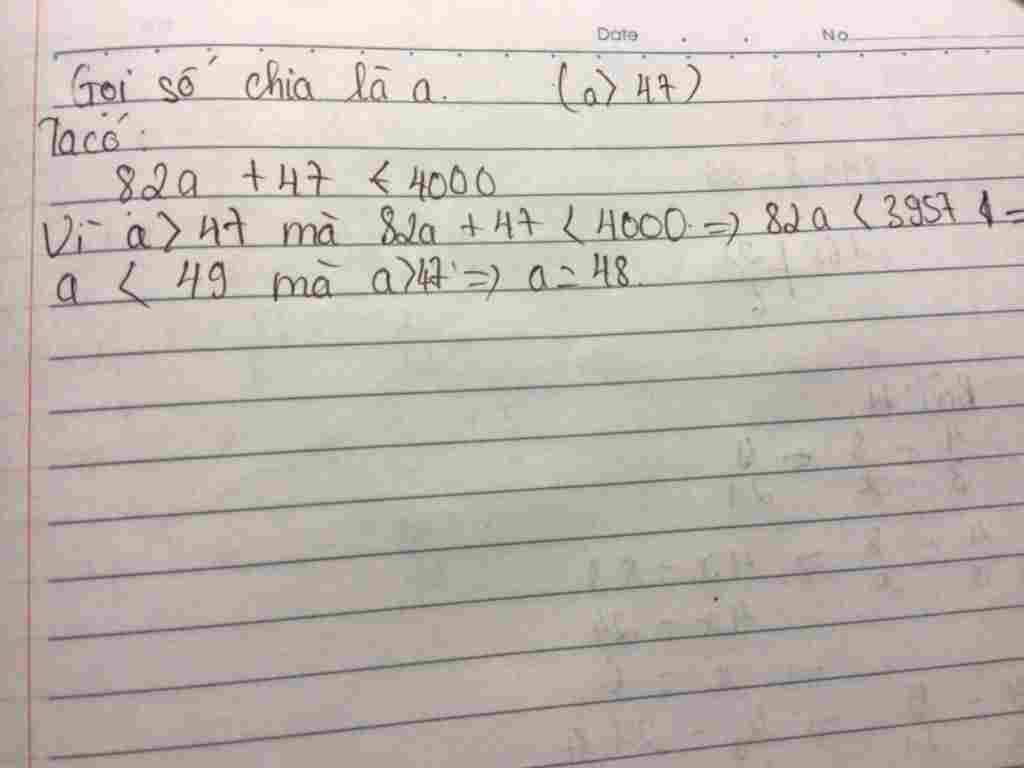 Date No
Gọi số chia là a. (a > 47)
Ta có:
82a + 47 < 4000
Vì a > 47 mà 82a + 47 < 4000 => 82a < 3957 =
a < 49 mà a > 47 => a = 48.